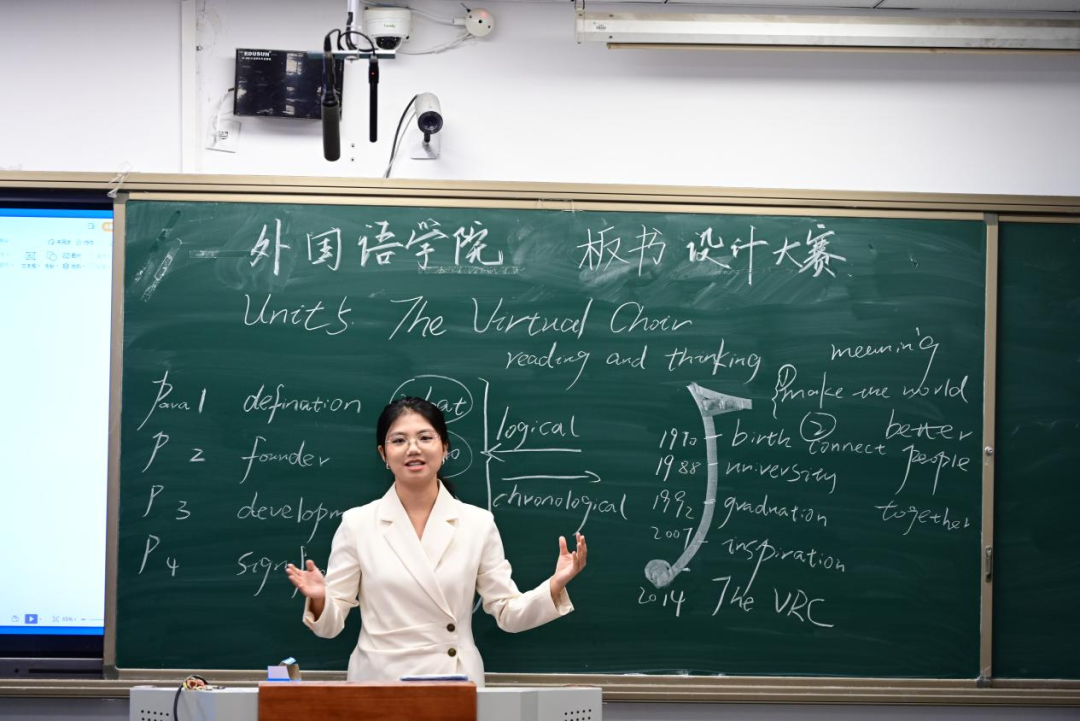 EDUSUN
外国语学院 板书设计大赛
Unit 5. The Virtual Choir
reading and thinking
Para 1 defination
P 2 founder
P 3
P 4
logical
chronological
1970 birth
1988 university
1992 graduation
2007 inspiration
2014 The VRC
meaning
① make the world
better
② connect
people
together